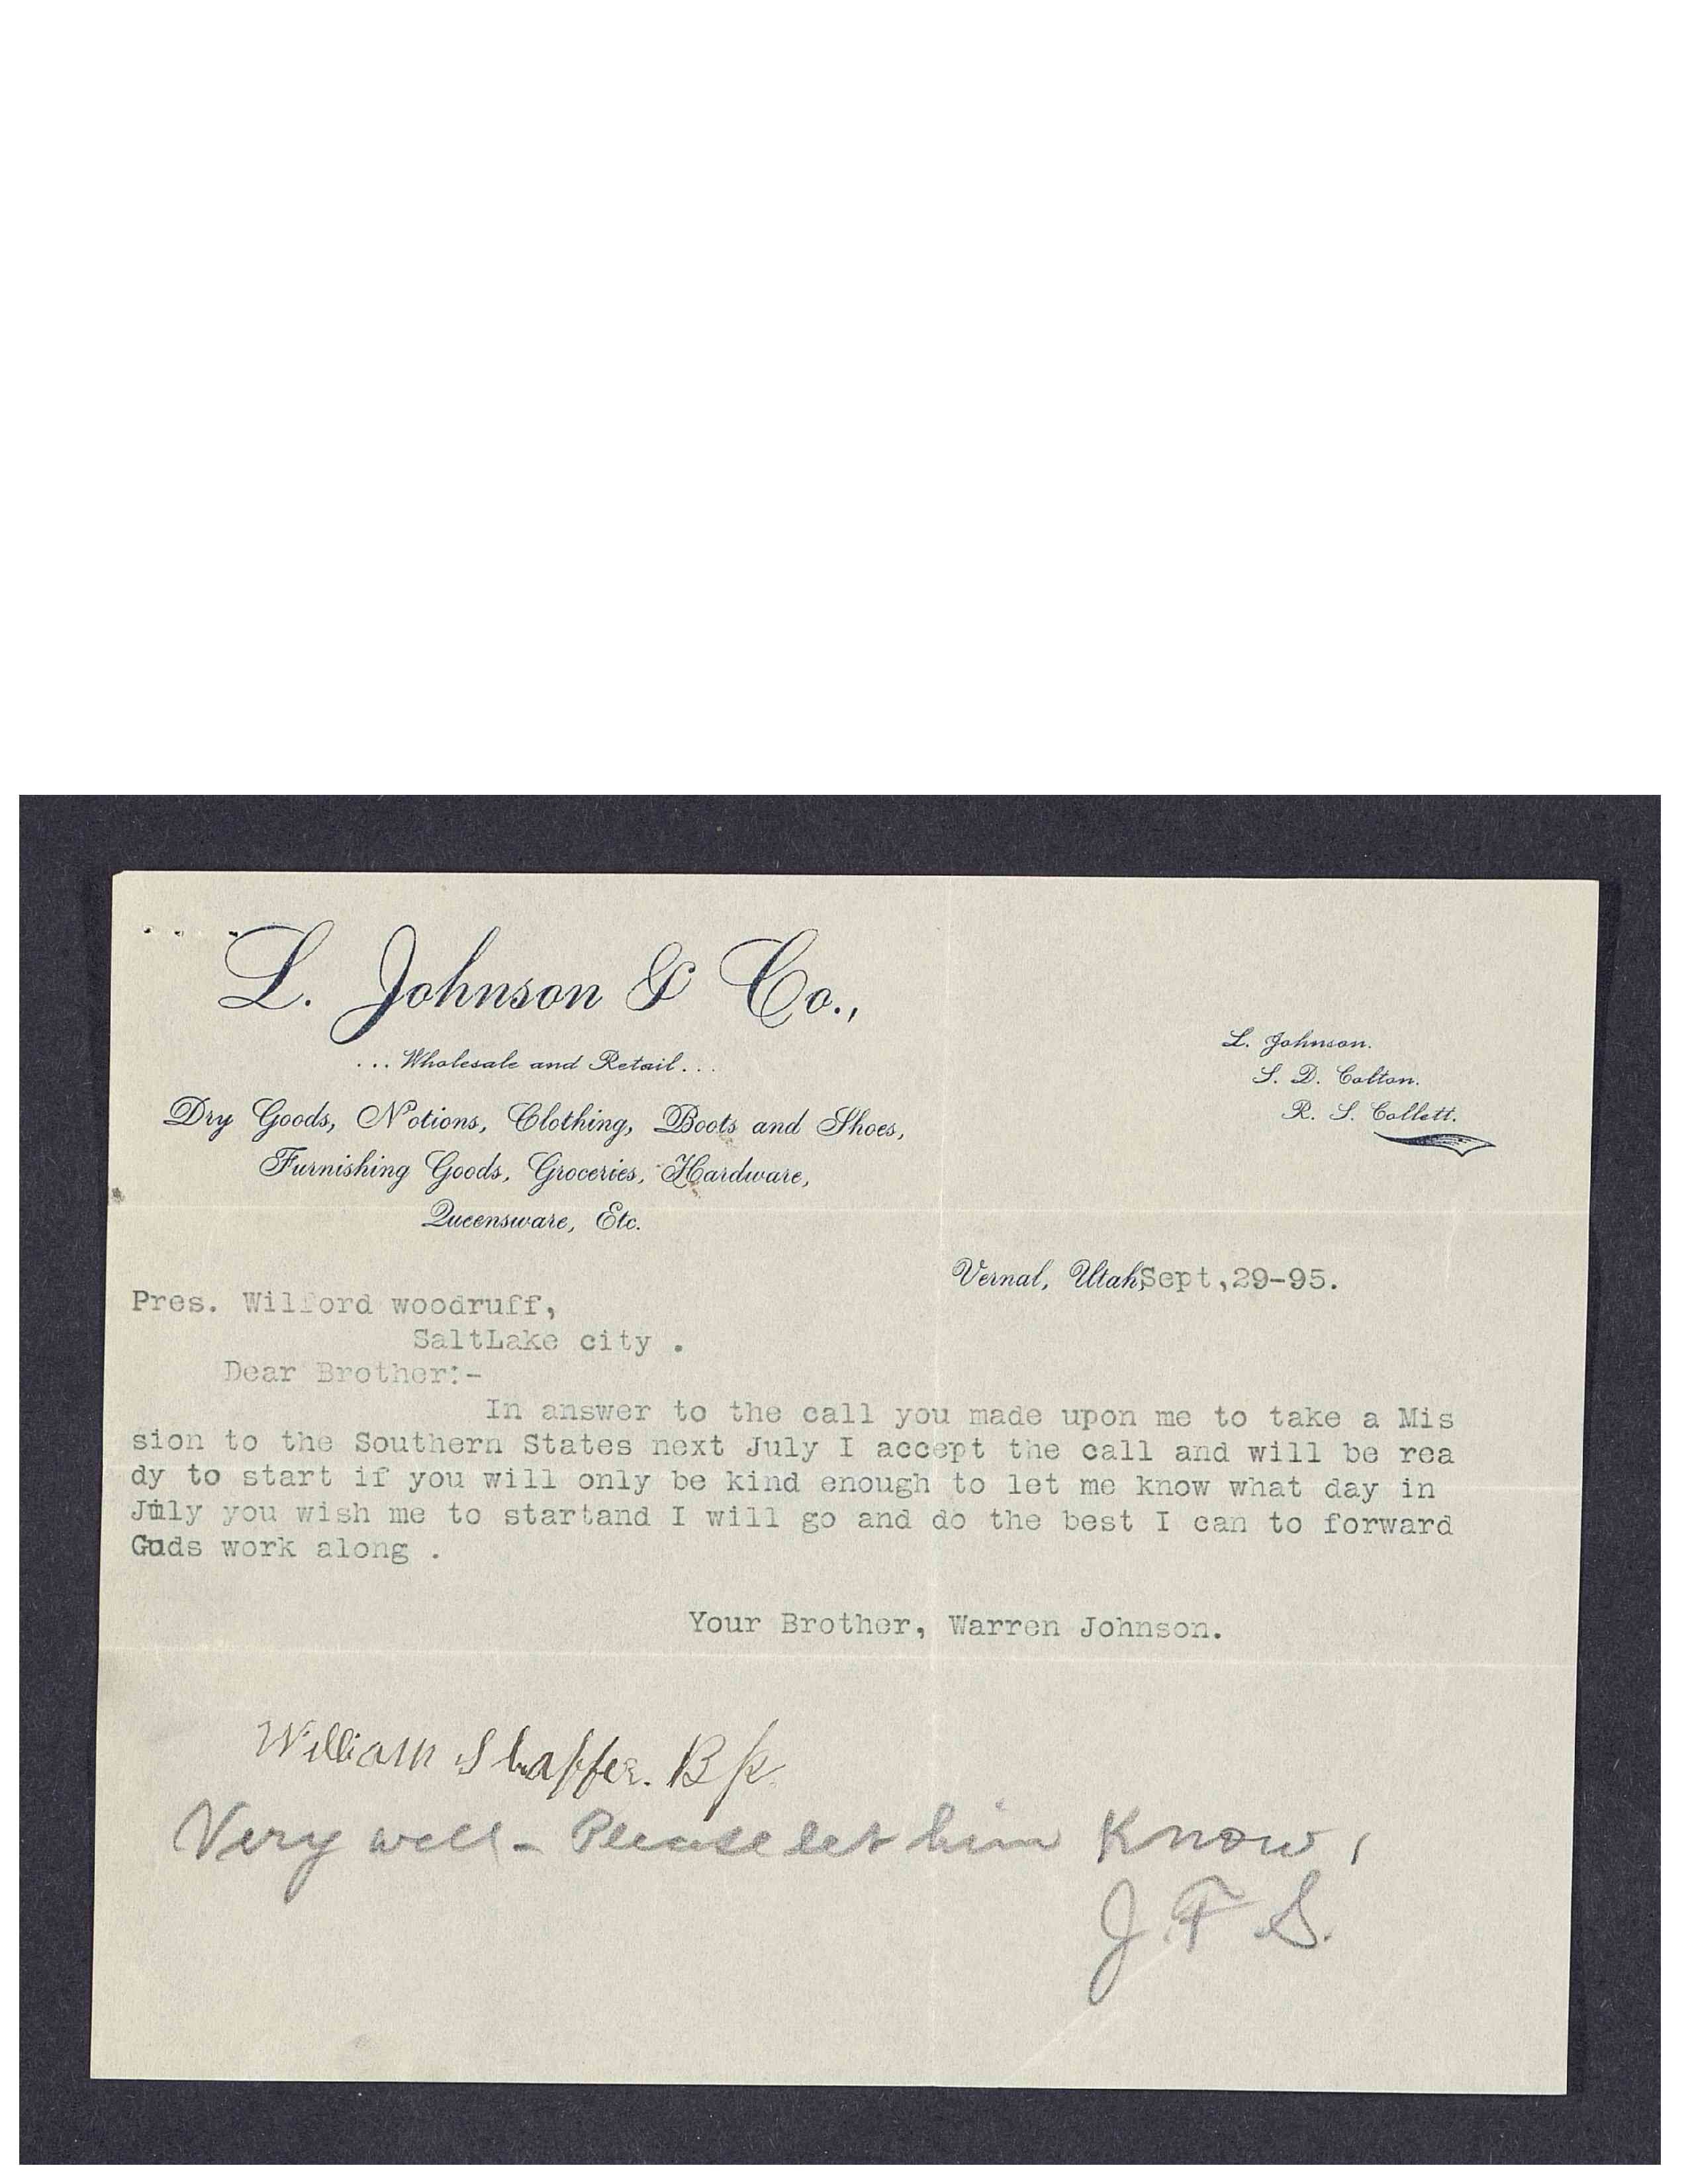 L. Johnson & Co.,
... Wholesale and Retail...
Dry Goods, Notions, Clothing, Boots and Shoes,
Furnishing Goods, Groceries, Hardware,
Queensware, Etc.
L. Johnson.
S. D. Colton.
R. S. Collett.
Vernal, Utah, Sept,29-95.
Pres. Wilford woodruff,
SaltLake city .
Dear Brother:-
In answer to the call you made upon me to take a Mis
sion to the Southern States next July I accept the call and will be rea
dy to start if you will only be kind enough to let me know what day in
July you wish me to startand I will go and do the best I can to forward
Gods work along .
Your Brother, Warren Johnson.
William Shaffer. Bp.
Very well - Please let him know,
J. F. S.